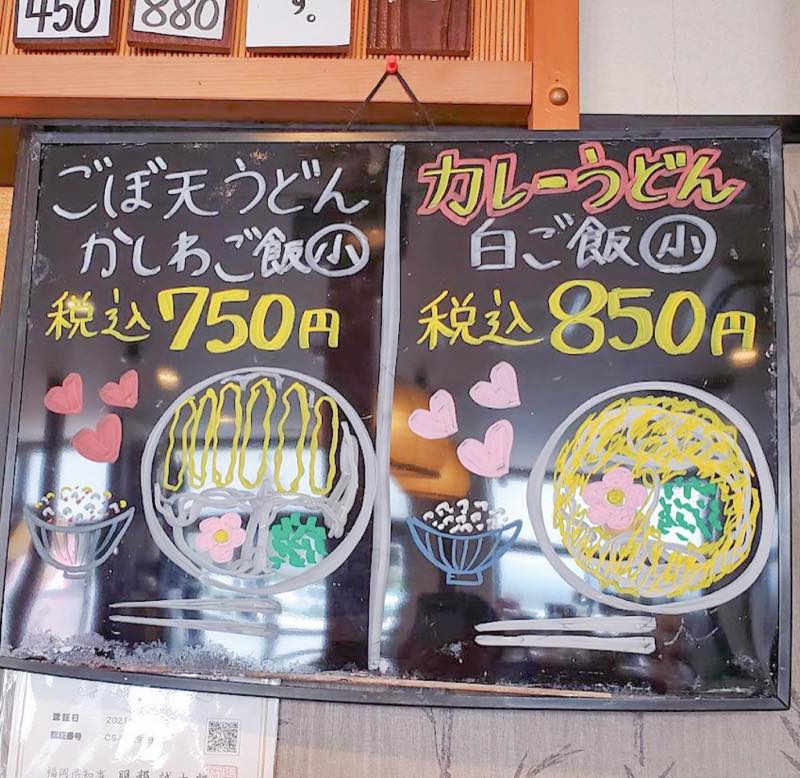 450
880
す。
ごぼ天うどん
かしわご飯小
税込750円
カレーうどん
白ご飯小
税込850円
認証日 2021
認証番号 CS-
福岡県知事 服部誠太郎